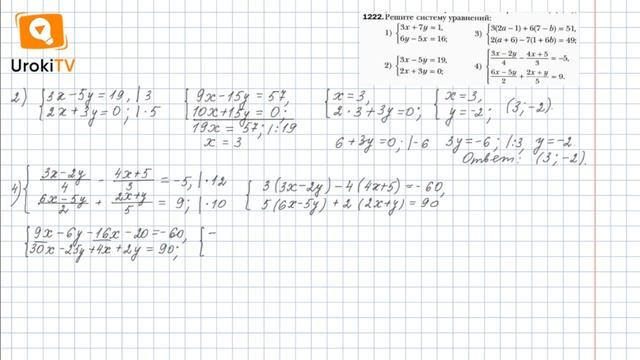 UrokiTV
1222. Решите систему уравнений:
1) {3x + 7y = 1, 6y − 5x = 16;
2) {3x − 5y = 19, 2x + 3y = 0;
3) {3(2a − 1) + 6(7 − b) = 51, 2(a + 6) − 7(1 + 6b) = 49;
4) {(3x − 2y)/4 − (4x + 5)/3 = −5, (6x − 5y)/2 + (2x + y)/5 = 9.
2) {3x − 5y = 19, | 3
2x + 3y = 0; | · 5
{9x − 15y = 57,
10x + 15y = 0;
19x = 57; | : 19
x = 3
{x = 3,
2 · 3 + 3y = 0;
{x = 3,
y = −2;
(3; −2).
6 + 3y = 0; | −6 3y = −6; | : 3, y = −2
Ответ: (3; −2).
4) {(3x − 2y)/4 − (4x + 5)/3 = −5, | · 12
(6x − 5y)/2 + (2x + y)/5 = 9; | · 10
{3(3x − 2y) − 4(4x + 5) = −60,
5(6x − 5y) + 2(2x + y) = 90
{9x − 6y − 16x − 20 = −60,
30x − 25y + 4x + 2y = 90;
{−